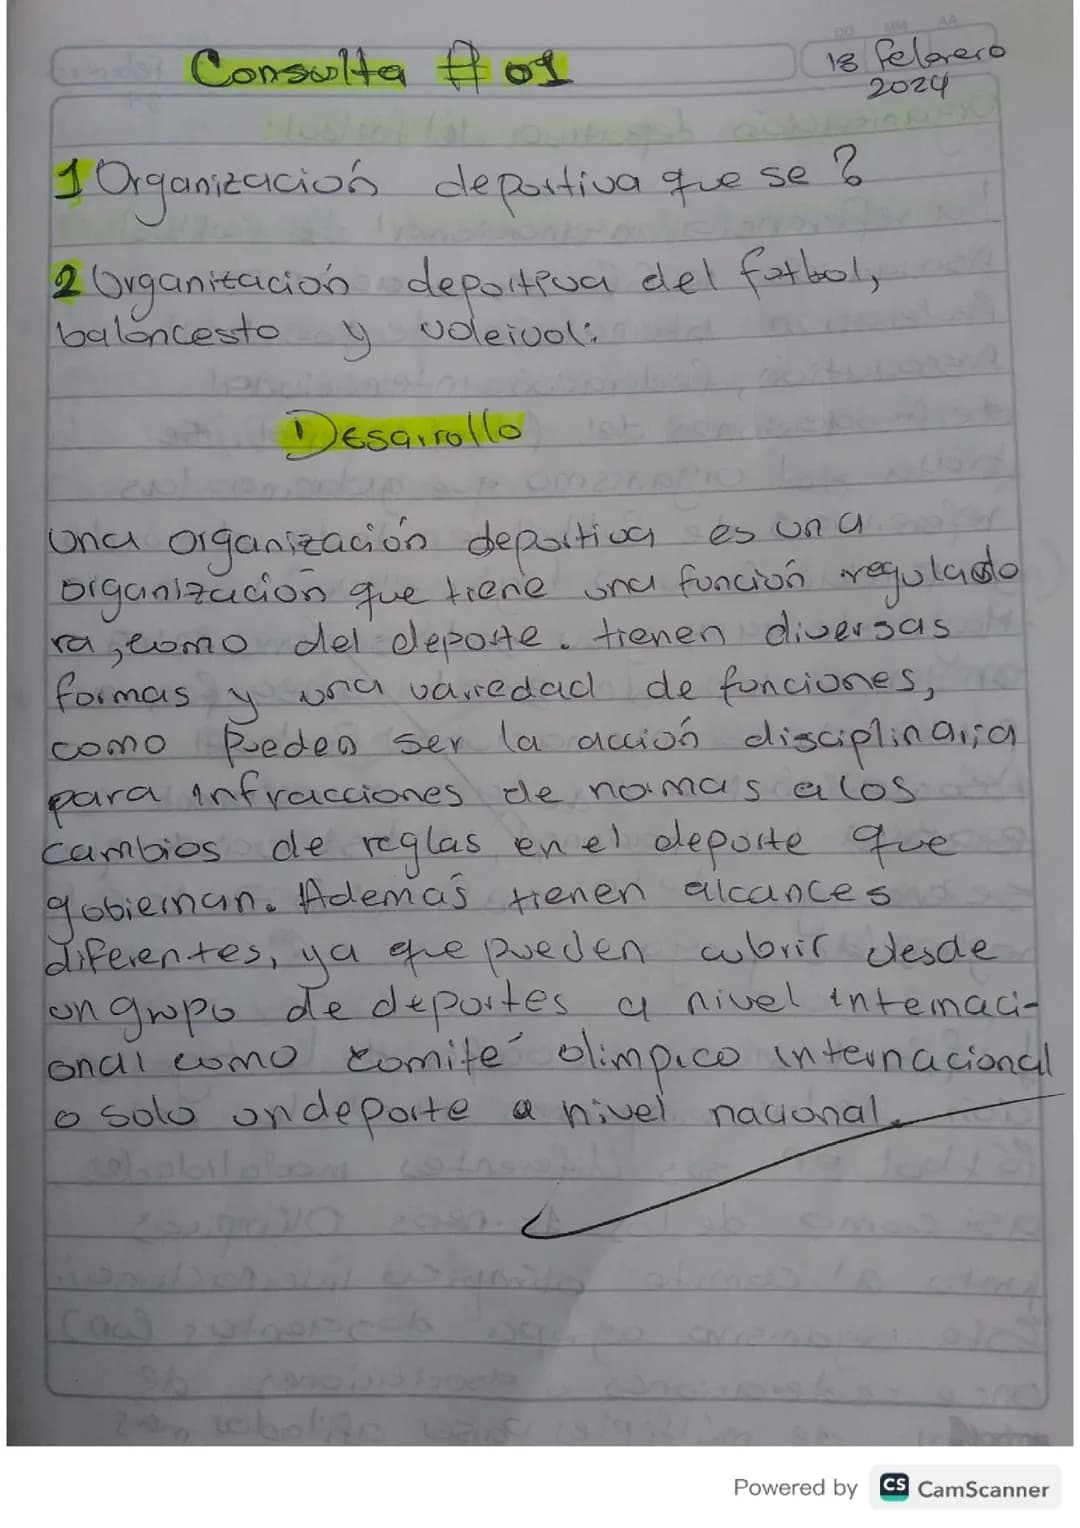 Consulta # 01
18 febrero
2024
1 Organización deportiva que se?
2 Organización deportiva del futbol,
baloncesto y voleivol:
Desarrollo
Una organización deportiva es una
organización que tiene una función regulado
ra, como del deporte. tienen diversas
formas y una variedad de funciones,
como Pueden ser la acción disciplinaria
para infracciones de normas a los
cambios de reglas en el deporte que
gobiernan. Además tienen alcances
diferentes, ya que pueden cubrir desde
un grupo de deportes a nivel internaci-
onal como comité olimpico internacional
o solo un deporte a nivel nacional.
Powered by CS CamScanner